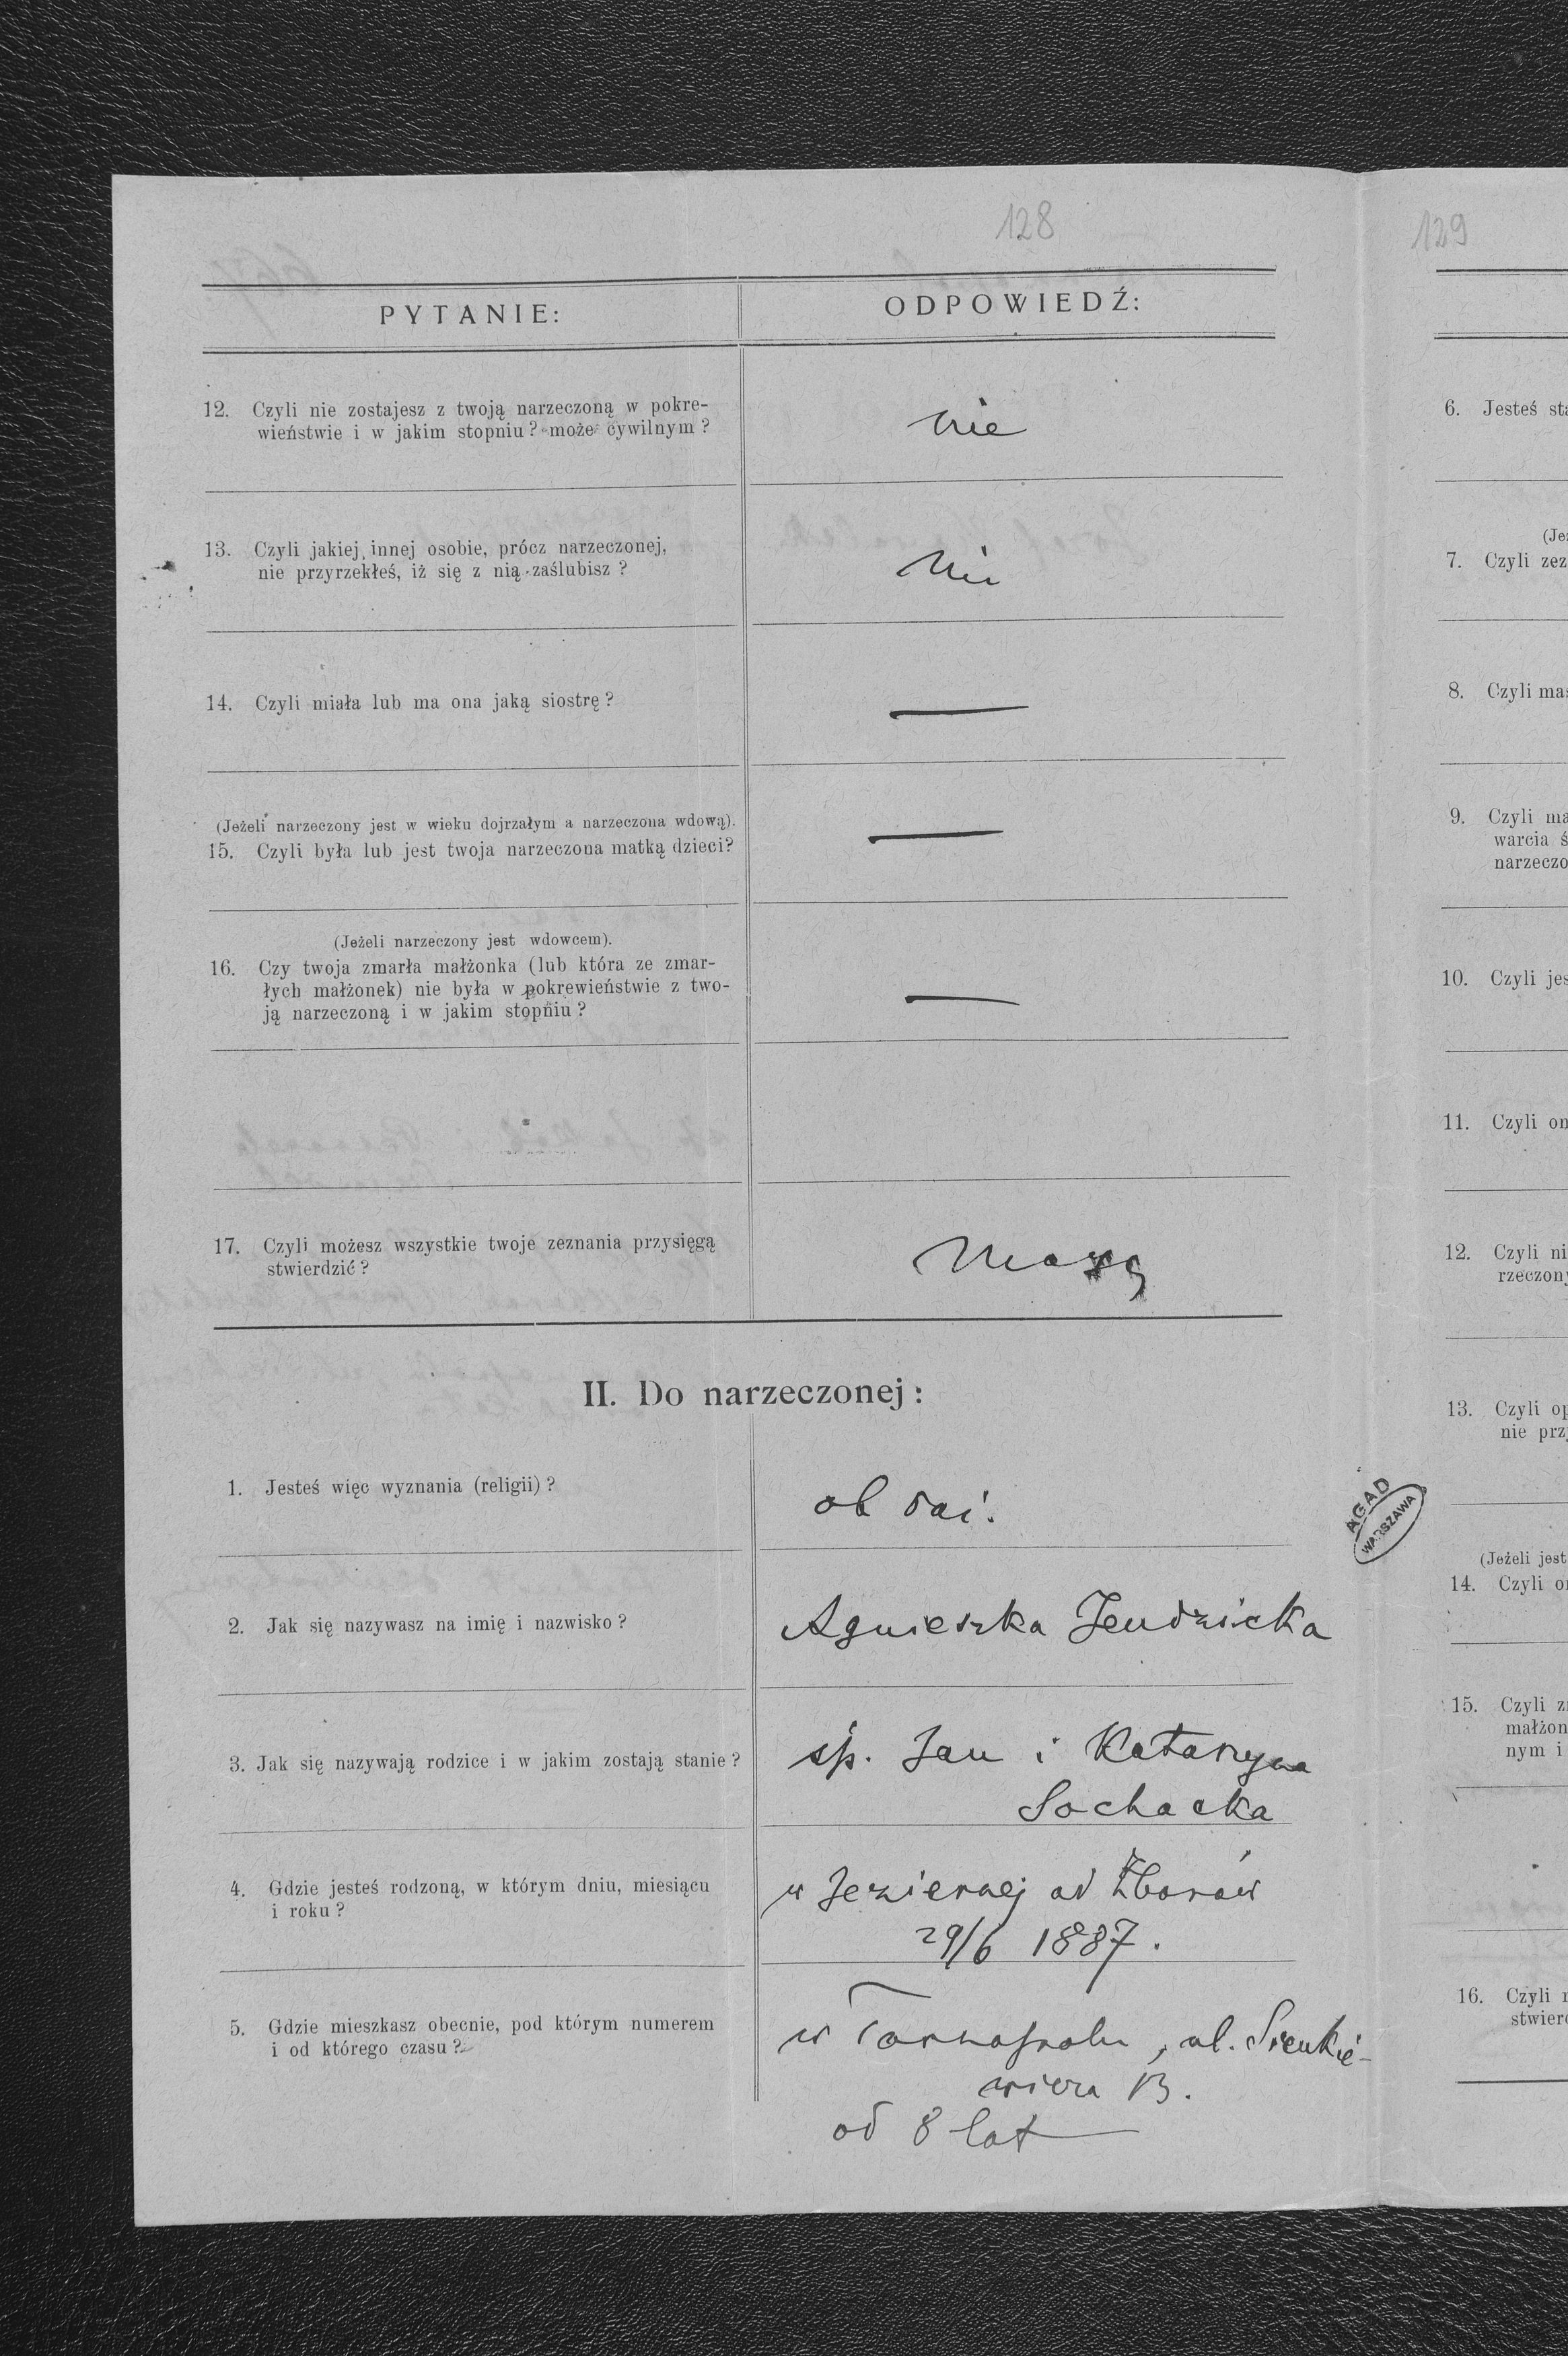 128
129
PYTANIE:
ODPOWIEDŹ:
12. Czyli nie zostajesz z twoją narzeczoną w pokre-
wieństwie i w jakim stopniu? może cywilnym?
nie
13. Czyli jakiej innej osobie, prócz narzeczonej,
nie przyrzekłeś, iż się z nią zaślubisz?
nie
14. Czyli miała lub ma ona jaką siostrę?
—
(Jeżeli narzeczony jest w wieku dojrzałym a narzeczona wdową).
15. Czyli była lub jest twoja narzeczona matką dzieci?
—
(Jeżeli narzeczony jest wdowcem).
16. Czy twoja zmarła małżonka (lub która ze zmar-
łych małżonek) nie była w pokrewieństwie z two-
ją narzeczoną i w jakim stopniu?
—
17. Czyli możesz wszystkie twoje zeznania przysięgą
stwierdzić?
Mogę
II. Do narzeczonej:
1. Jesteś więc wyznania (religii)?
ob łac.
2. Jak się nazywasz na imię i nazwisko?
Agnieszka Jendzicka
3. Jak się nazywają rodzice i w jakim zostają stanie?
śp. Jan i Katarzyna
Sochacka
4. Gdzie jesteś rodzoną, w którym dniu, miesiącu
i roku?
w Jeziernej ad Zborów
29/6 1887.
5. Gdzie mieszkasz obecnie, pod którym numerem
i od którego czasu?
w Tarnopolu, ul. Sienkie-
wicza 13.
od 8 lat
AGAD
WARSZAWA
6. Jesteś sta
(Je
7. Czyli zez
8. Czyli mas
9. Czyli ma
warcia ś
narzeczo
10. Czyli jes
11. Czyli on
12. Czyli ni
rzeczony
13. Czyli op
nie prz
(Jeżeli jest
14. Czyli o
15. Czyli z
małżon
nym i
16. Czyli
stwier